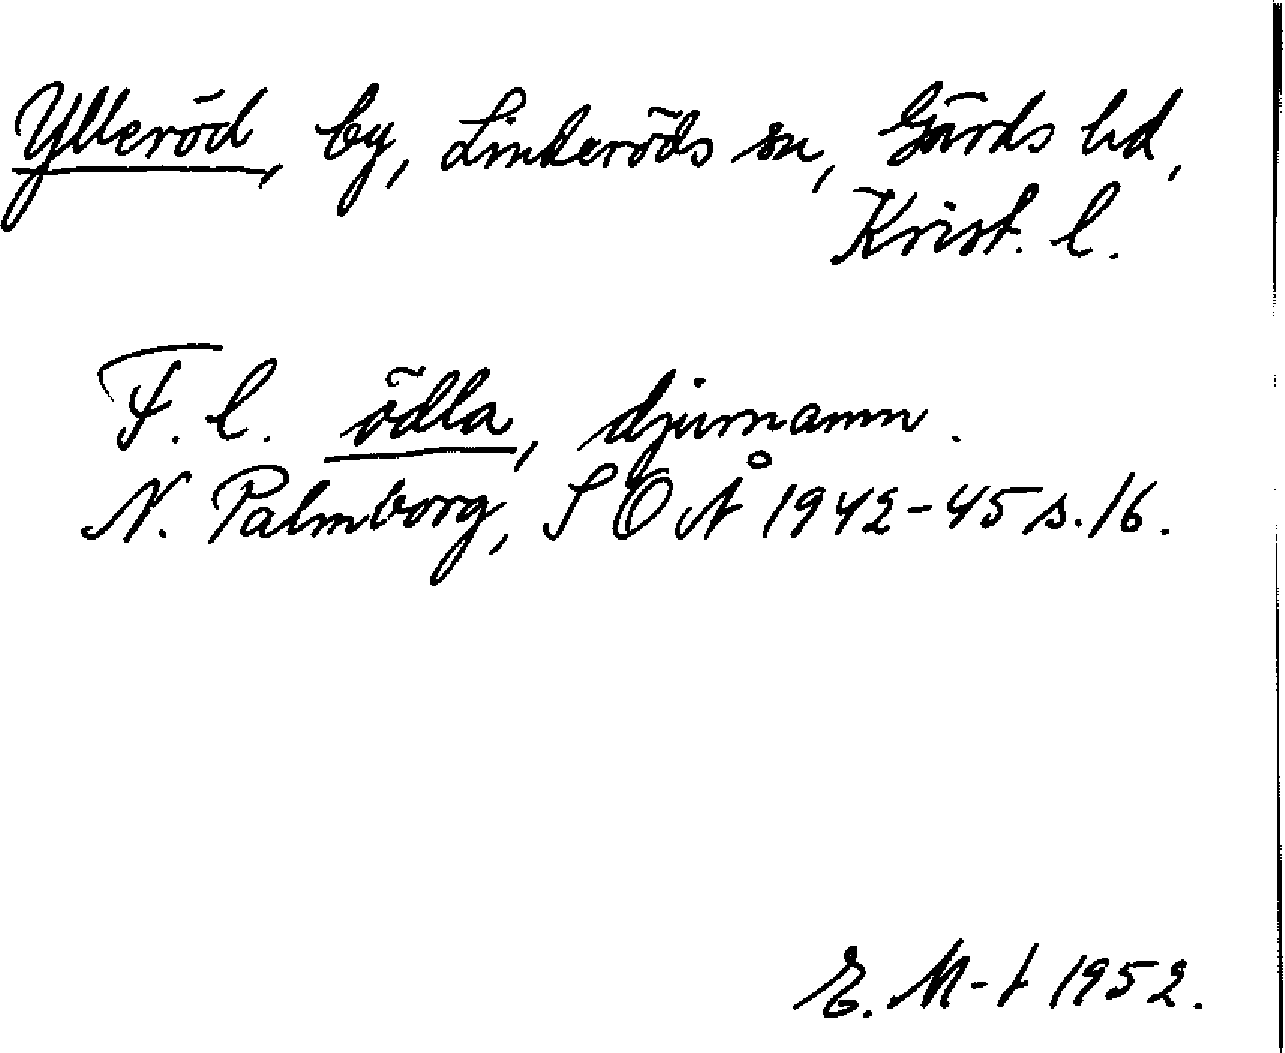 Ylleröd, by, Linderöds sn, Gärds hd,
Krist. l.
F. l. ödla, djurnamn.
N. Palmborg, SOÅ 1942-45 s. 16.
E. M-t 1952.